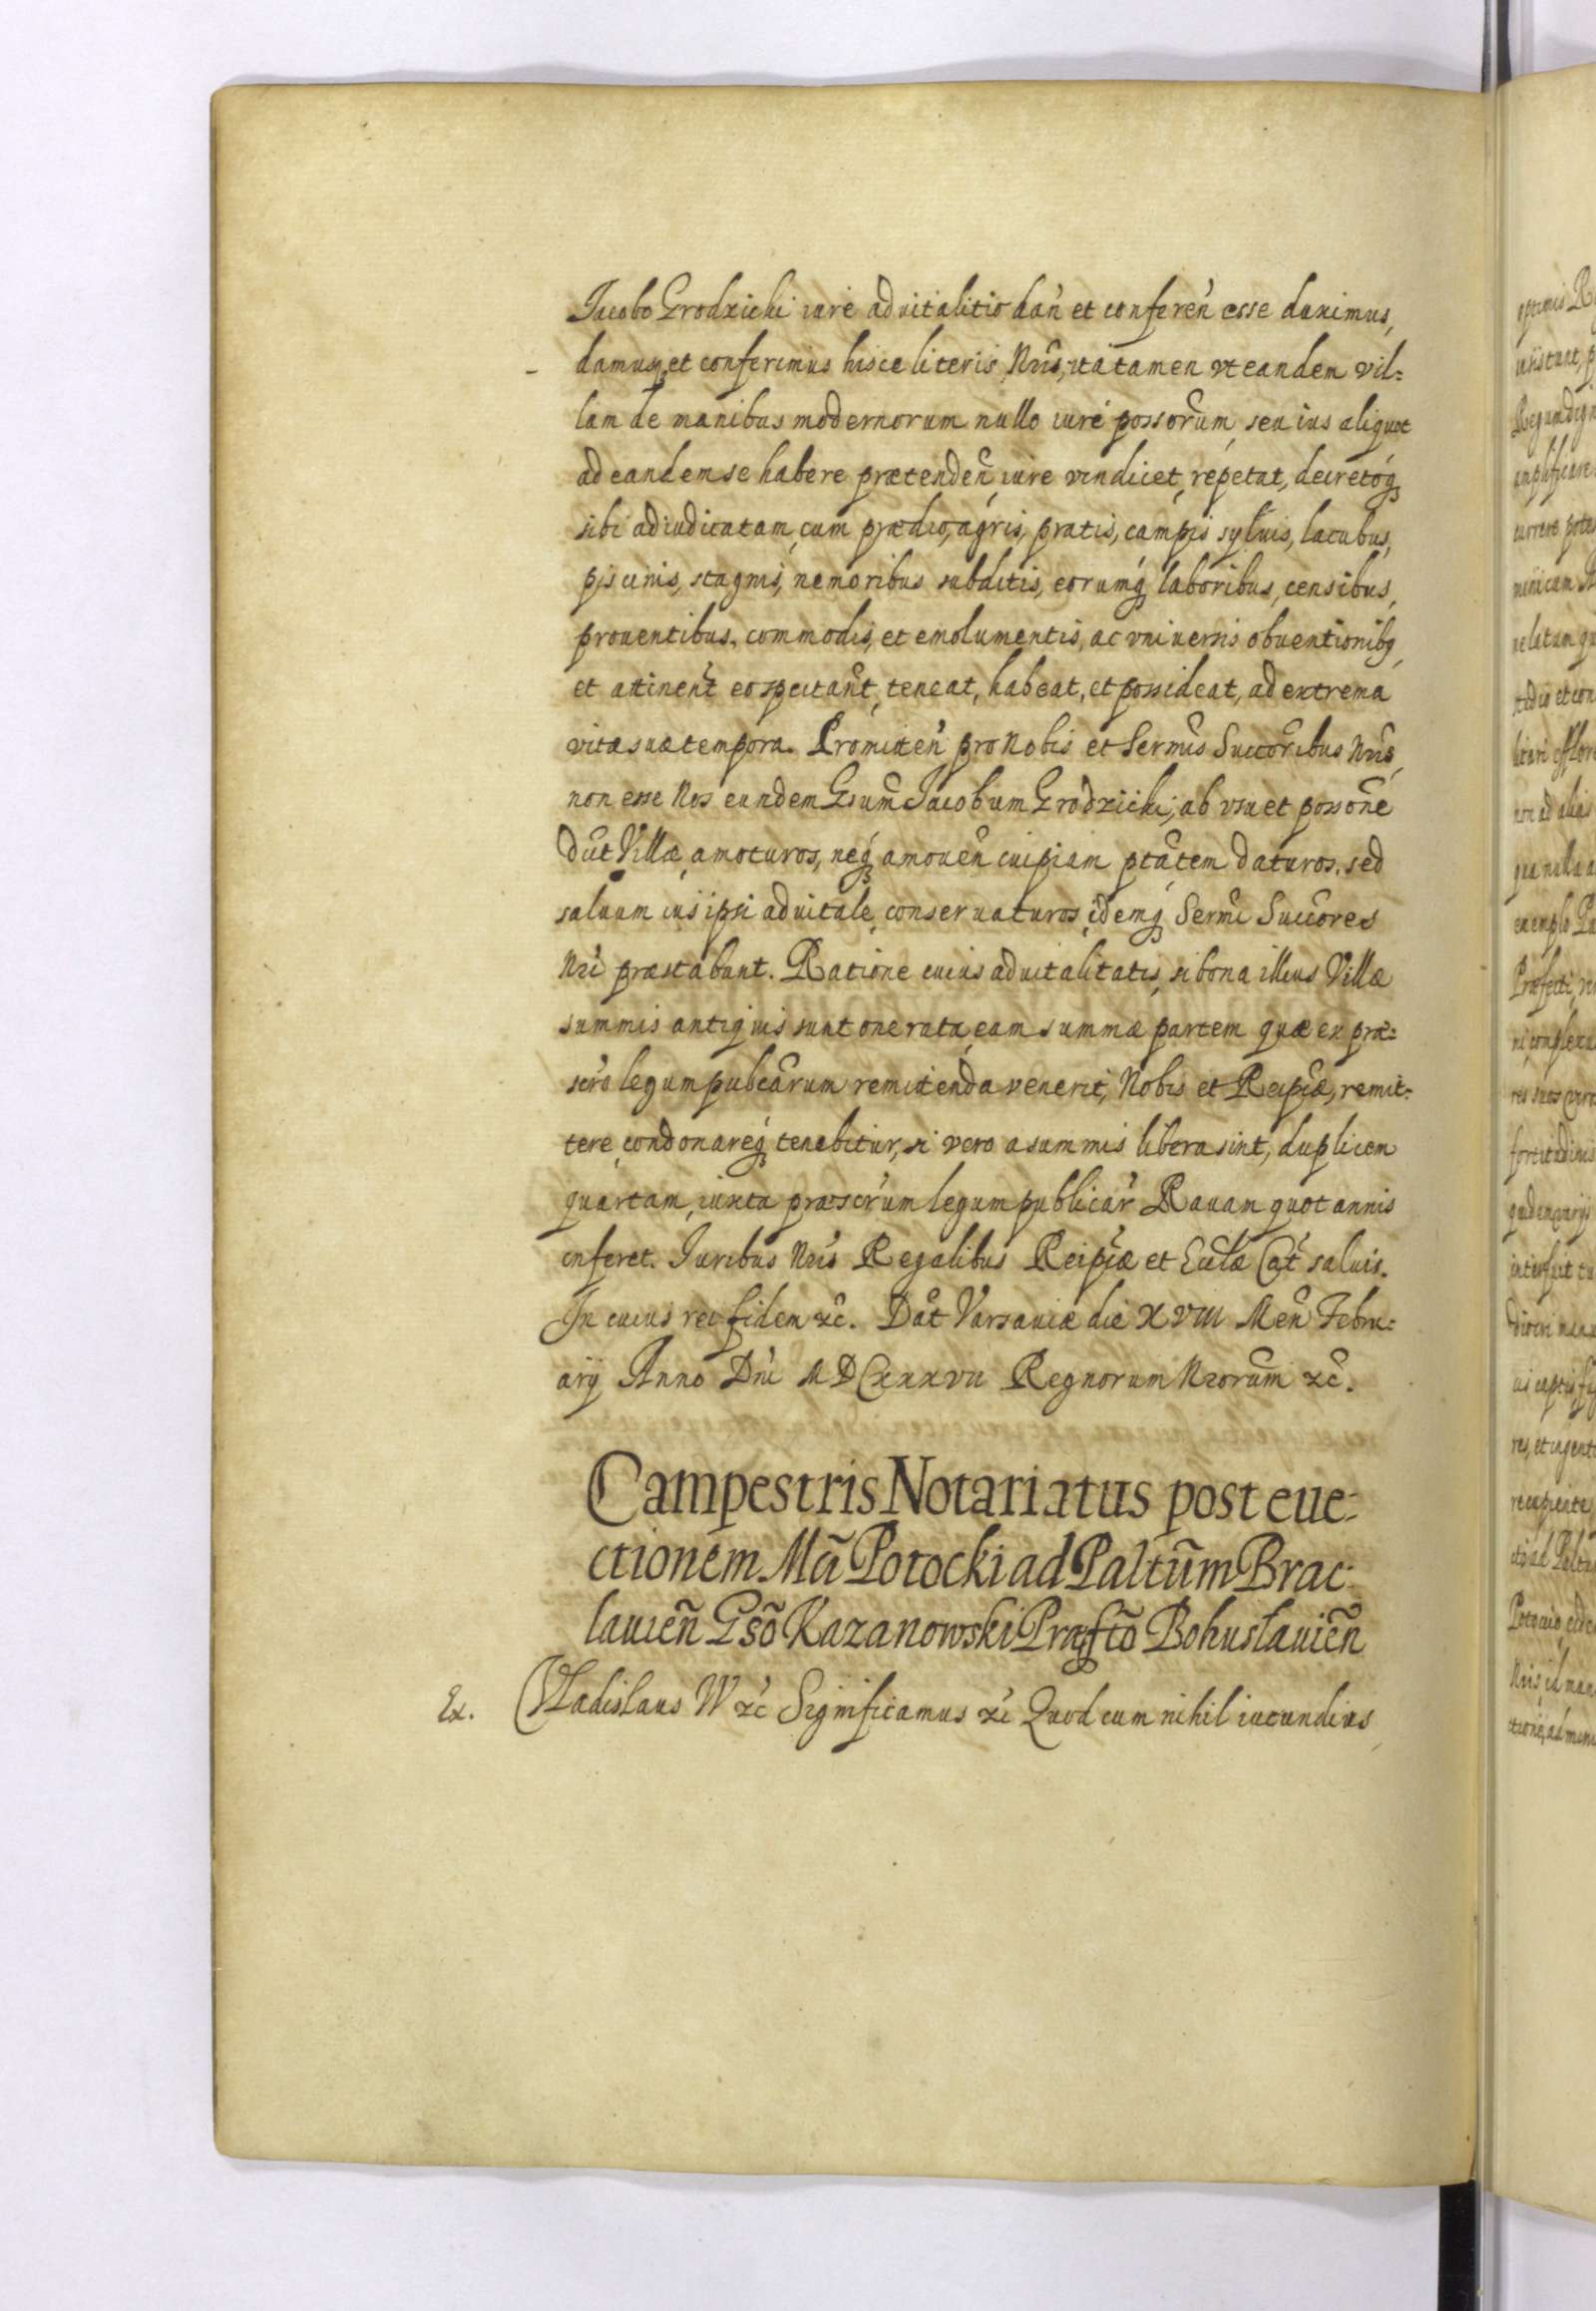 Jacobo Grodzicki iure aduitalitio dan̄ et conferen̄ esse duximus,
damusq, et conferimus hisce literis Nr̄is, ita tamen vt eandem vil=
lam de manibus modernorum nullo iure possor̄um, seu ius aliquot
ad eandem se habere prætenden̄, iure vindicet, repetat, decretóq
sibi adiudicatam, cum prædio, agris, pratis, campis syluis, lacubus,
piscinis, stagnis, nemoribus subditis, eorumq́ laboribus, censibus,
prouentibus, commodis, et emolumentis, ac vniuersis obuentionibq,
et attinen̄t eo spectan̄t, teneat, habeat, et possideat, ad extrema
vitæ suæ tempora. Promitten̄ pro Nobis et Serm̄is Succor̄ibus Nr̄is,
non esse Nos eundem Gsum̄ Jacobum Grodzicki, ab vsu et posson̄e
dc̄t Villæ, amoturos, neq́ amouen̄ cuipiam pt̄atem daturos, sed
saluum ius ipsi aduitale, conseruaturos, idemq́ Serm̄i Succor̄es
Nr̄i præstabunt. Ratione cuius aduitalitatis, si bona illius Villæ
summis antiquis sunt onerata, eam summæ partem quæ ex præ=
scr̄o legum pub̄carum remittenda venerit, Nobis et Reip̄cæ, remit=
tere, condonareq́ tenebitur, si vero a summis libera sint, duplicem
quartam, iuxta præscr̄um legum publicar̄ Rauam quotannis
inferet. Juribus Nr̄is Regalibus Reip̄cæ et Eccl̄æ Cat̄ saluis.
In cuius rei fidem &c̄. Dat̄ Varsauiæ die XVIII Men̄ Febru=
arij Anno Dn̄i MDCxxxvii Regnorum Nr̄orum &c̄.
Campestris Notariatus post eue=
ctionem Mc̄i Potocki ad Palt̄um Brac=
lauien̄ Gsō Kazanowski Præfctō Bohuslauien̄
Ex. Vladislaus IV &c̄ Significamus &c̄ Quod cum nihil iucundius